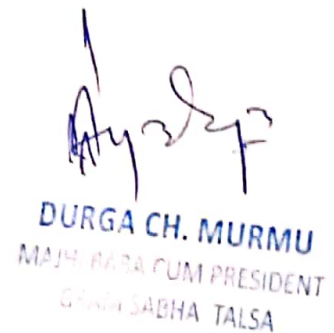 DURGA CH. MURMU
MAJHI BABA CUM PRESIDENT
GRAM SABHA TALSA